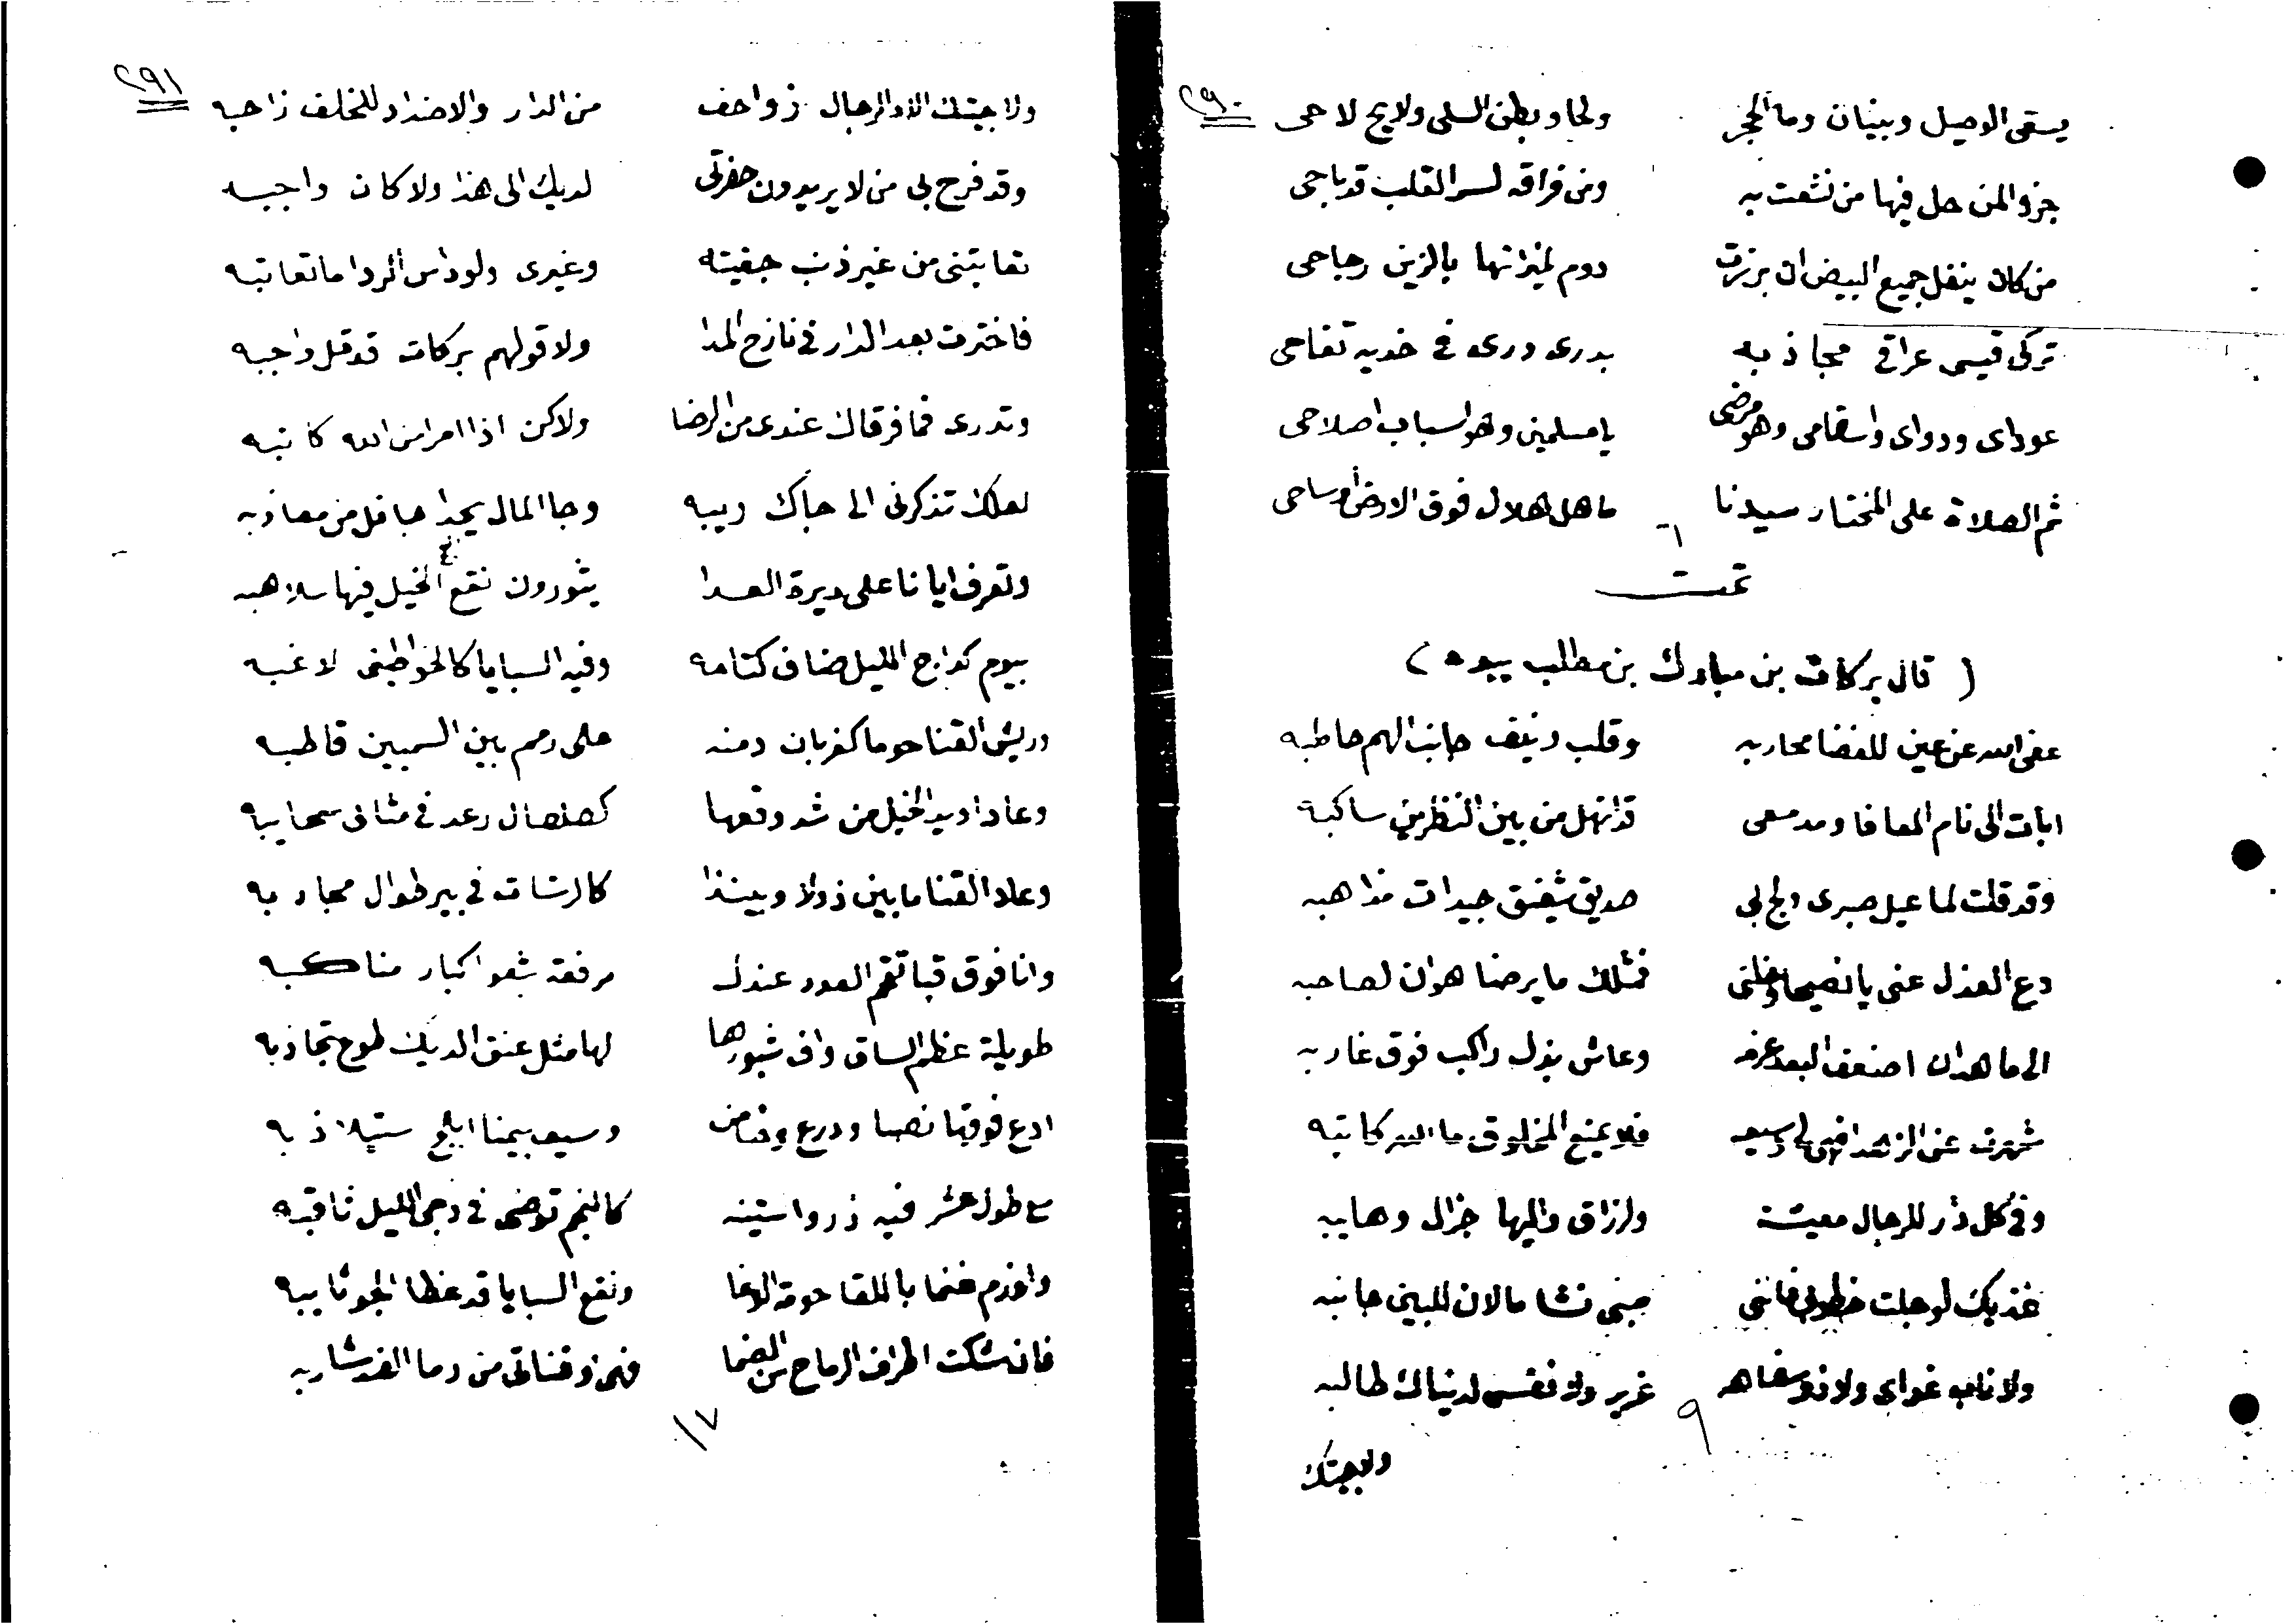 ٢٩٠
يسقى الوصيل وبينان وما الحجز ولحا وبطن السلى ولايح لاحى
جزو المن حل فيها من نشعت به ومن فراقه لسر القلب قد باحى
من كان ينفل جميع البيض ان برزت دوم لميزانها بالزين رجاحى
تركى قيسى عراقى مجاذبه بدرى درى فى خديه تفاحى
عوداى ودواى واسقامى وهو مرضى يا مسلمين وهو اسباب اصلاحى
ثم الصلاة على المختار سيدنا ما هل هلال فوق الارض وساحى
٦
تمت
( قال بركات بن مبارك بن مطلب )
عفى الله عن عين للغضا محاربه وقلب دنيف جانب الهم حاطبه
ابات الى نام المعافا ومدمعى قد انهل من بين النظرين ساكبة
وقد قلت لما عيل صبرى ولج بى صديق شفيق جيدات مذاهبه
دع العذل عنى يا نصيحا وخلنى فمثلك ما يرضا هوان لصاحبه
الى ما هدان اضعف البعد عزمه وعاش بذل راكب فوق غاربه
شهرت عن الزهدا فلا يمنع المخلوق ما الله كاتبه
وفى كل دار للرجال معيشة ولرزاق واليها جزال وهايبه
غذيك لو جلت خطوبى فاننى صبى نشا ما لان للبين جانبه
ولا ناب غواى ولا ذو سفاهه غرير ولا نفسى لدنياك طالبه
٩
ولاجيتك
٢٩١
ولا جيتك الا والرجال زواحف من الدار والاضداد للخلف زاحبه
وقد فرح بى من لا يريدون حضرتى لديك الى هذا ولا كان واجبه
تعاتبنى من غير ذنب جنيته وغيرى ولو داس الردا ما تعاتبه
فاخترت بعد الدار فى نازح المدا ولا قولهم بركات قد قل واجبه
وتدرى فما فرقاك عندى من الرضا ولاكن اذا امرا من الله كاتبه
لعلك تذكرنى الى جاك ريبه وجا المال يحدا جافل من معازبه
وتعرف ايانا على ديرة العدا يثورون نقع الخيل فيها سلاهبه
بيوم كداج الليل ضاف كتامه وفيه السبايا كالخواطيف لاغبه
وريش القنا حوما كغربان دمنه على رمم بين السميين قاطبه
وعاد اويد الخيل من شد وقعها كصلصال رعد فى مثانى سحايبه
وعاد القنا ما بين ذولا وبينذا كالرشات فى بير طوال مجاذبه
وانا فوق قبا تقحم العدد عندل مرفعة شعوا كبار مناكبه
طويلة عظم الساق واف شبورها لها مثل عنق الديك طوع تجاذبه
ادع فوقها نصبا ودرع وضامن وسيف بيمنا ابلج ستلاذبه
مع طول عشر فيه زروا ستينه كالنجم توضى فى دجى الليل ثاقبه
واقدم غنما باللقا حومة الوغا ونقع السبايا قد غطا الجو ثايبه
فان شكت اطراف الرماح من الضما فهى وقناتى من دما الضد شاربه
١٧